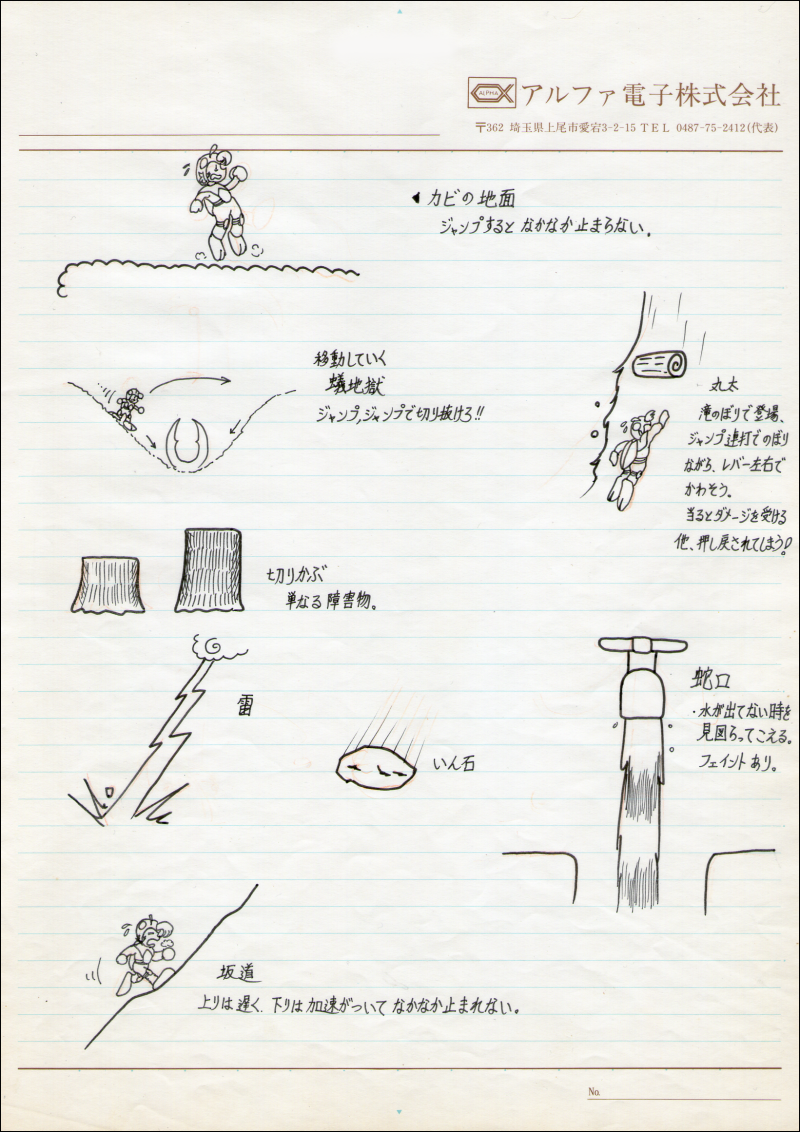 ALPHA アルファ電子株式会社
〒362 埼玉県上尾市愛宕3-2-15 TEL 0487-75-2412(代表)
◀ カビの地面
ジャンプすると なかなか止まらない。
移動していく
蟻地獄
ジャンプ,ジャンプで切り抜けろ!!
丸太
滝のぼりで登場、
ジャンプ連打でのぼり
ながら、レバー左右で
かわそう。
当るとダメージを受ける
他、押し戻されてしまう!
切りかぶ
単なる障害物。
雷
いん石
蛇口
・水が出てない時を
見図らってこえる。
フェイントあり。
坂道
上りは遅く、下りは加速がついて なかなか止まれない。
No.